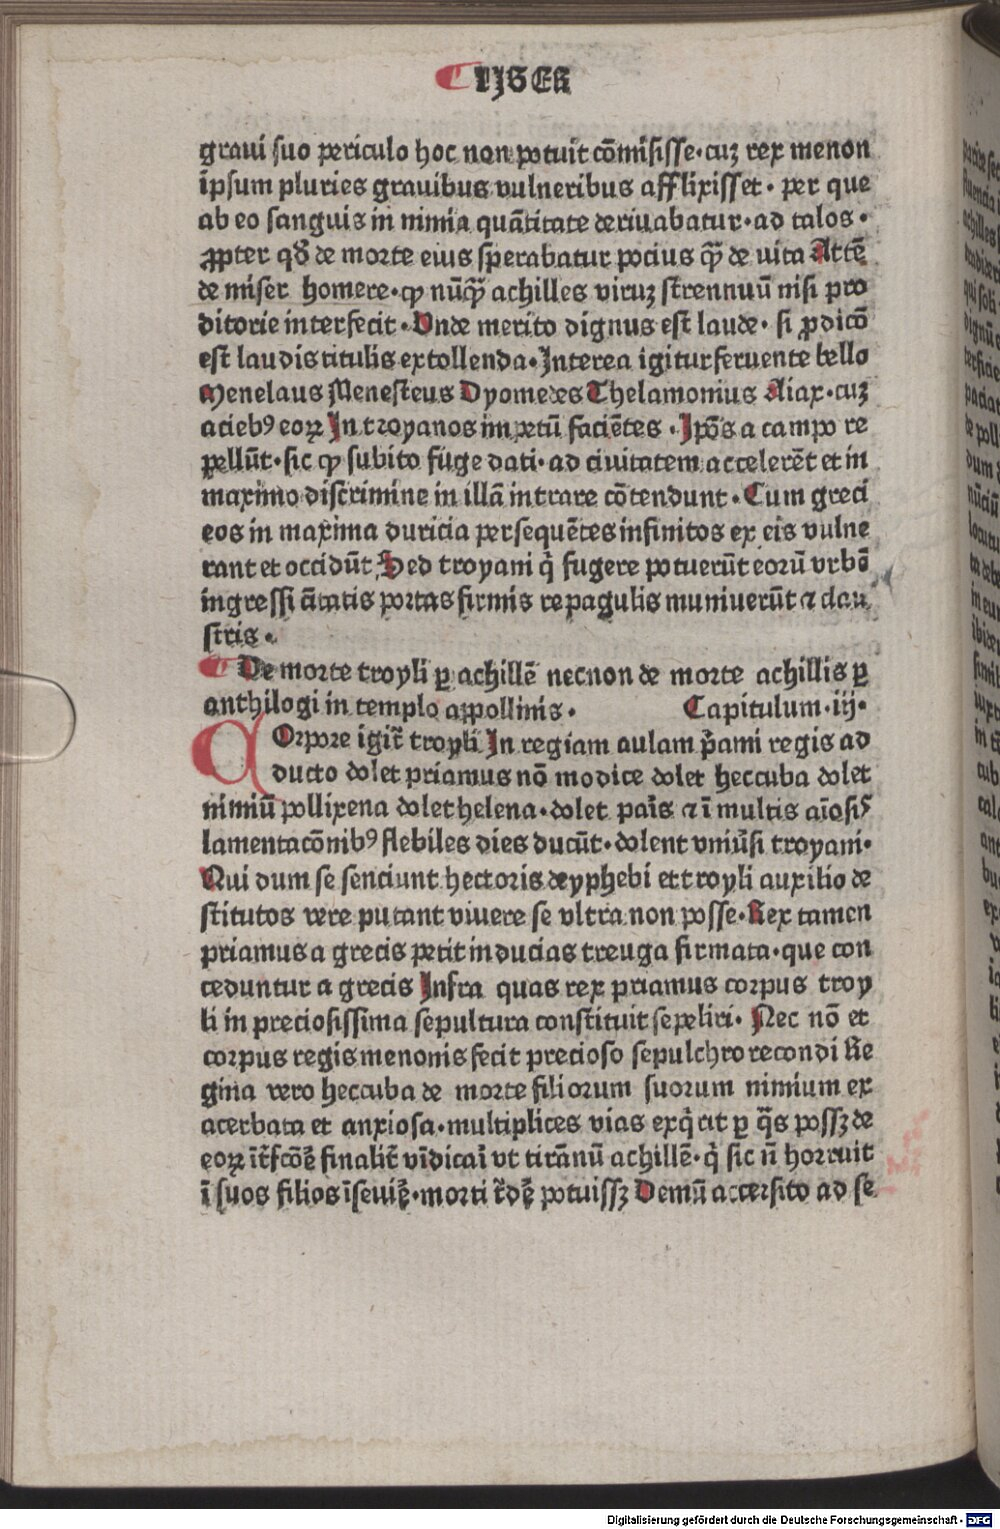 LIBER
graui suo periculo hoc non potuit cōmisisse·cuꝫ rex menon
ipsum pluries grauibus vulneribus afflixisset· per que
ab eo sanguis in nimia quātitate deriuabatur·ad talos·
ꝓpter qđ de morte eius sperabatur pocius qꝫ̄ de uita Attē
de miser homere·ꝙ nūqꝫ̄ achilles viruꝫ strennuū nisi pro
ditorie interfecit·Vnde merito dignus est laude· si ꝓdicō
est laudis titulis extollenda·Interea igitur feruente bello
Menelaus Menesteus Dyomedes Thelamonius Aiax·cuꝫ
aciebꝰ eoꝝ In troyanos impetū faciētes·Ipōs a campo re
pellūt·sic ꝙ subito fuge dati·ad ciuitatem accelerēt et in
maximo discrimine in illā intrare cōtendunt·Cum greci
eos in maxima duricia persequētes infinitos ex eis vulne
rant et occidūt Sed troyani q̇ fugere potuerūt eorū vrbē
ingressi ciuitatis portas firmis repagulis muniuerūt ⁊ clau
stris·
De morte troyli ꝑ achillē necnon de morte achillis ꝑ
anthilogi in templo appollinis· Capitulum·iij·
COrpore igit̄ troyli In regiam aulam p̄ami regis ad
ducto dolet priamus nō modice dolet heccuba dolet
nimiū pollixena dolet helena·dolet paris ⁊ ī multis aīosis
lamentacōnibꝰ flebiles dies ducūt·dolent vniūsi troyani·
Qui dum se senciunt hectoris deyphebi et troyli auxilio de
stitutos vere putant viuere se vltra non posse·Rex tamen
priamus a grecis petit inducias treuga firmata·que con
ceduntur a grecis Infra quas rex priamus corpus troy
li in preciosissima sepultura constituit sepeliri· Nec nō et
corpus regis menonis fecit precioso sepulchro recondi Re
gina vero heccuba de morte filiorum suorum nimium ex
acerbata et anxiosa·multiplices vias exq̇rit ꝑ q̄s possꝫ de
eoꝝ īt̄fcōē finalit̄ vīdicari vt tirānū achillē·q̇ sic ī horruit
ī suos filios īseuiē·morti t̄dē potuissꝫ Demū accersito ad se
Digitalisierung gefördert durch die Deutsche Forschungsgemeinschaft - DFG